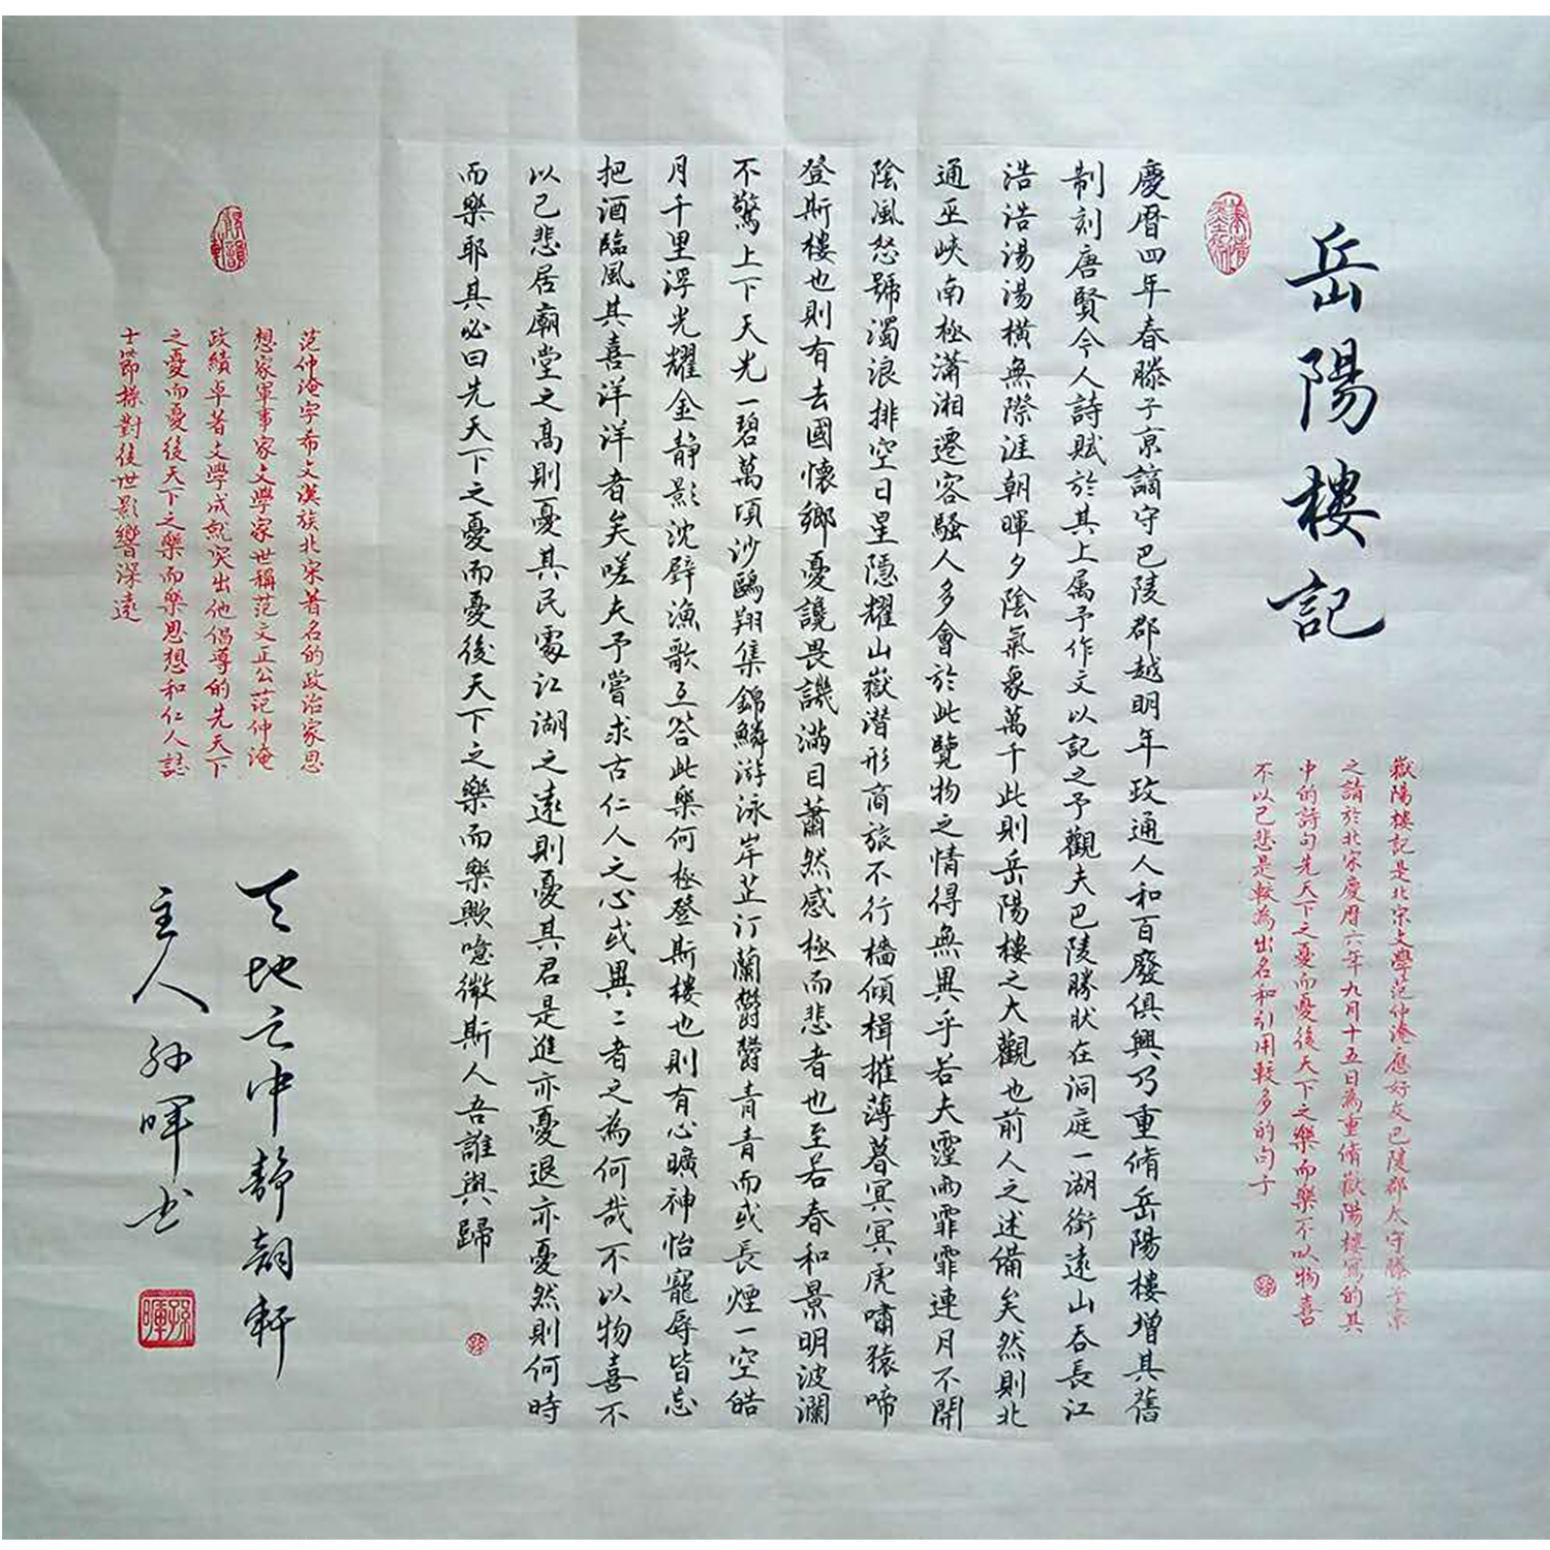 岳陽樓記
嶽陽樓記是北宋文學范仲淹應好友巴陵郡太守滕子京
之請於北宋慶曆六年九月十五日為重脩嶽陽樓寫的其
中的詩句先天下之憂而憂後天下之樂而樂不以物喜
不以己悲是較為出名和引用較多的句子
慶曆四年春滕子京謫守巴陵郡越明年政通人和百廢俱興乃重脩岳陽樓增其舊
制刻唐賢今人詩賦於其上属予作文以記之予觀夫巴陵勝狀在洞庭一湖銜遠山吞長江
浩浩湯湯橫無際涯朝暉夕陰氣象萬千此則岳陽樓之大觀也前人之述備矣然則北
通巫峽南極瀟湘遷客騷人多會於此覽物之情得無異乎若夫霪雨霏霏連月不開
陰風怒號濁浪排空日星隱耀山嶽潛形商旅不行檣傾楫摧薄暮冥冥虎嘯猿啼
登斯樓也則有去國懷鄉憂讒畏譏滿目蕭然感極而悲者也至若春和景明波瀾
不驚上下天光一碧萬頃沙鷗翔集錦鱗游泳岸芷汀蘭鬱鬱青青而或長煙一空皓
月千里浮光耀金静影沈璧漁歌互答此樂何極登斯樓也則有心曠神怡寵辱皆忘
把酒臨風其喜洋洋者矣嗟夫予嘗求古仁人之心或異二者之為何哉不以物喜不
以己悲居廟堂之高則憂其民處江湖之遠則憂其君是進亦憂退亦憂然則何時
而樂耶其必曰先天下之憂而憂後天下之樂而樂歟噫微斯人吾誰與歸
范仲淹字希文漢族北宋著名的政治家思
想家軍事家文學家世稱范文正公范仲淹
政績卓著文學成就突出他倡導的先天下
之憂而憂後天下之樂而樂思想和仁人誌
士節操對後世影響深遠
天地之中靜韻軒
主人孫暉书
孫暉